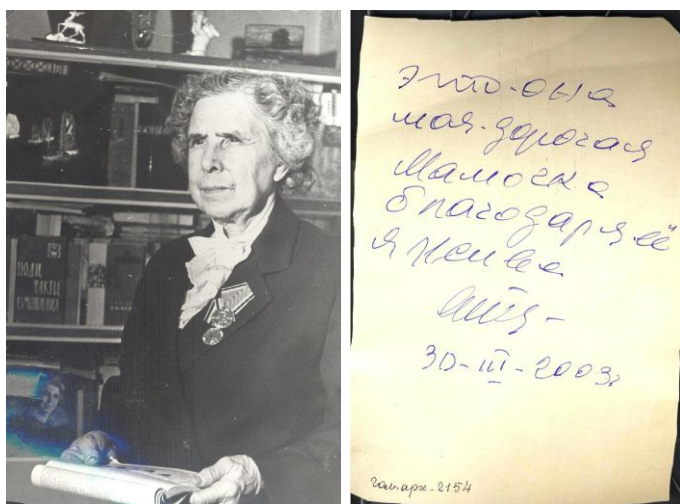 ЛЮДИ
ФАКТЫ
это-она
моя-дорогая
Мамочка
благодаря её
я жива
30-III-2003г
Гом.арх.-2154